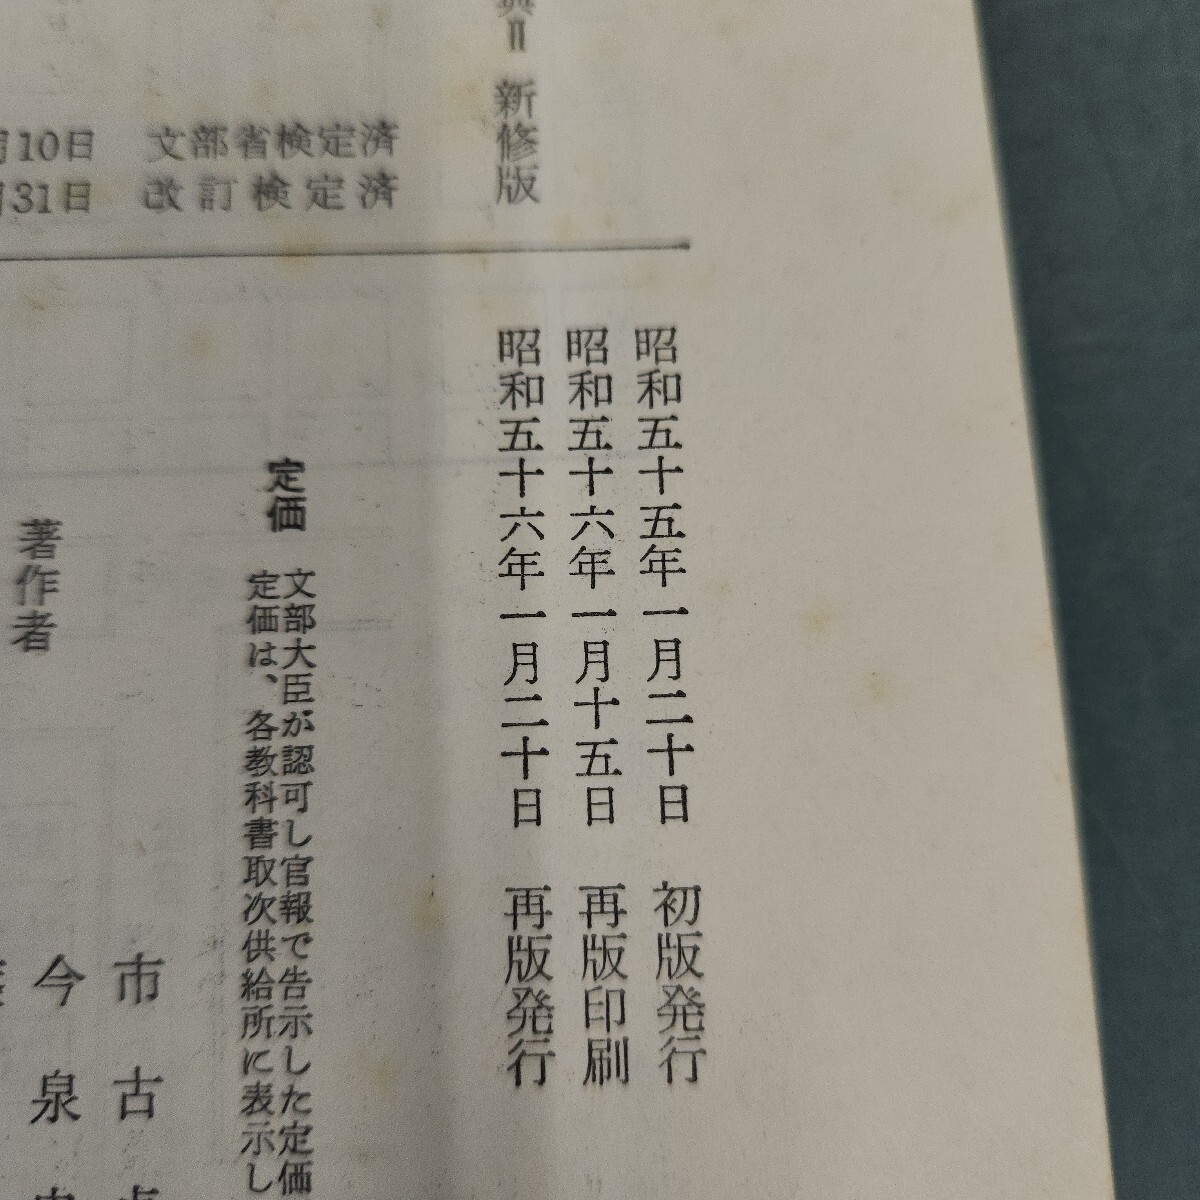 Ⅱ 新修版
10日 文部省検定済
31日 改訂検定済
昭和五十五年一月二十日 初版発行
昭和五十六年一月十五日 再版印刷
昭和五十六年一月二十日 再版発行
定価
文部大臣が認可し官報で告示した定価
定価は、各教科書取次供給所に表示し
著作者
市古
今泉